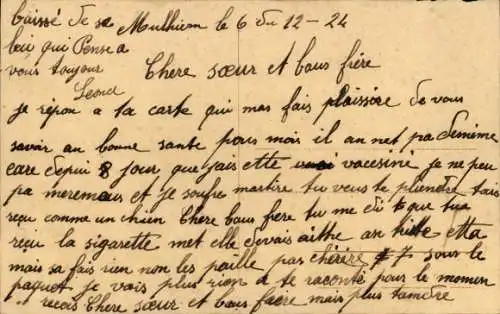 baissé de se Mulhiem le 6 du 12 - 24
lui qui Pense a
vous toujour
Leona
Chere sœur et baus frère
je répon a ta carte qui mas fais plaissire de vous
savoir an bonne sante pours mois il an net pa de mème
care depui 8 jour que jais ette vacesiné je ne peu
pa et je soufre martire tu veus te plendre tais
reçu comme un chien Chere baus frere tu me di te que tu a
reçu la sigarette met elle devais aithe an ette
mais sa fais rien non les paille pas chérère 7 sour le
paquet je vais plus rien a te raconté pour le momen
recois Chere sœur et baus faere mais plus tamdre